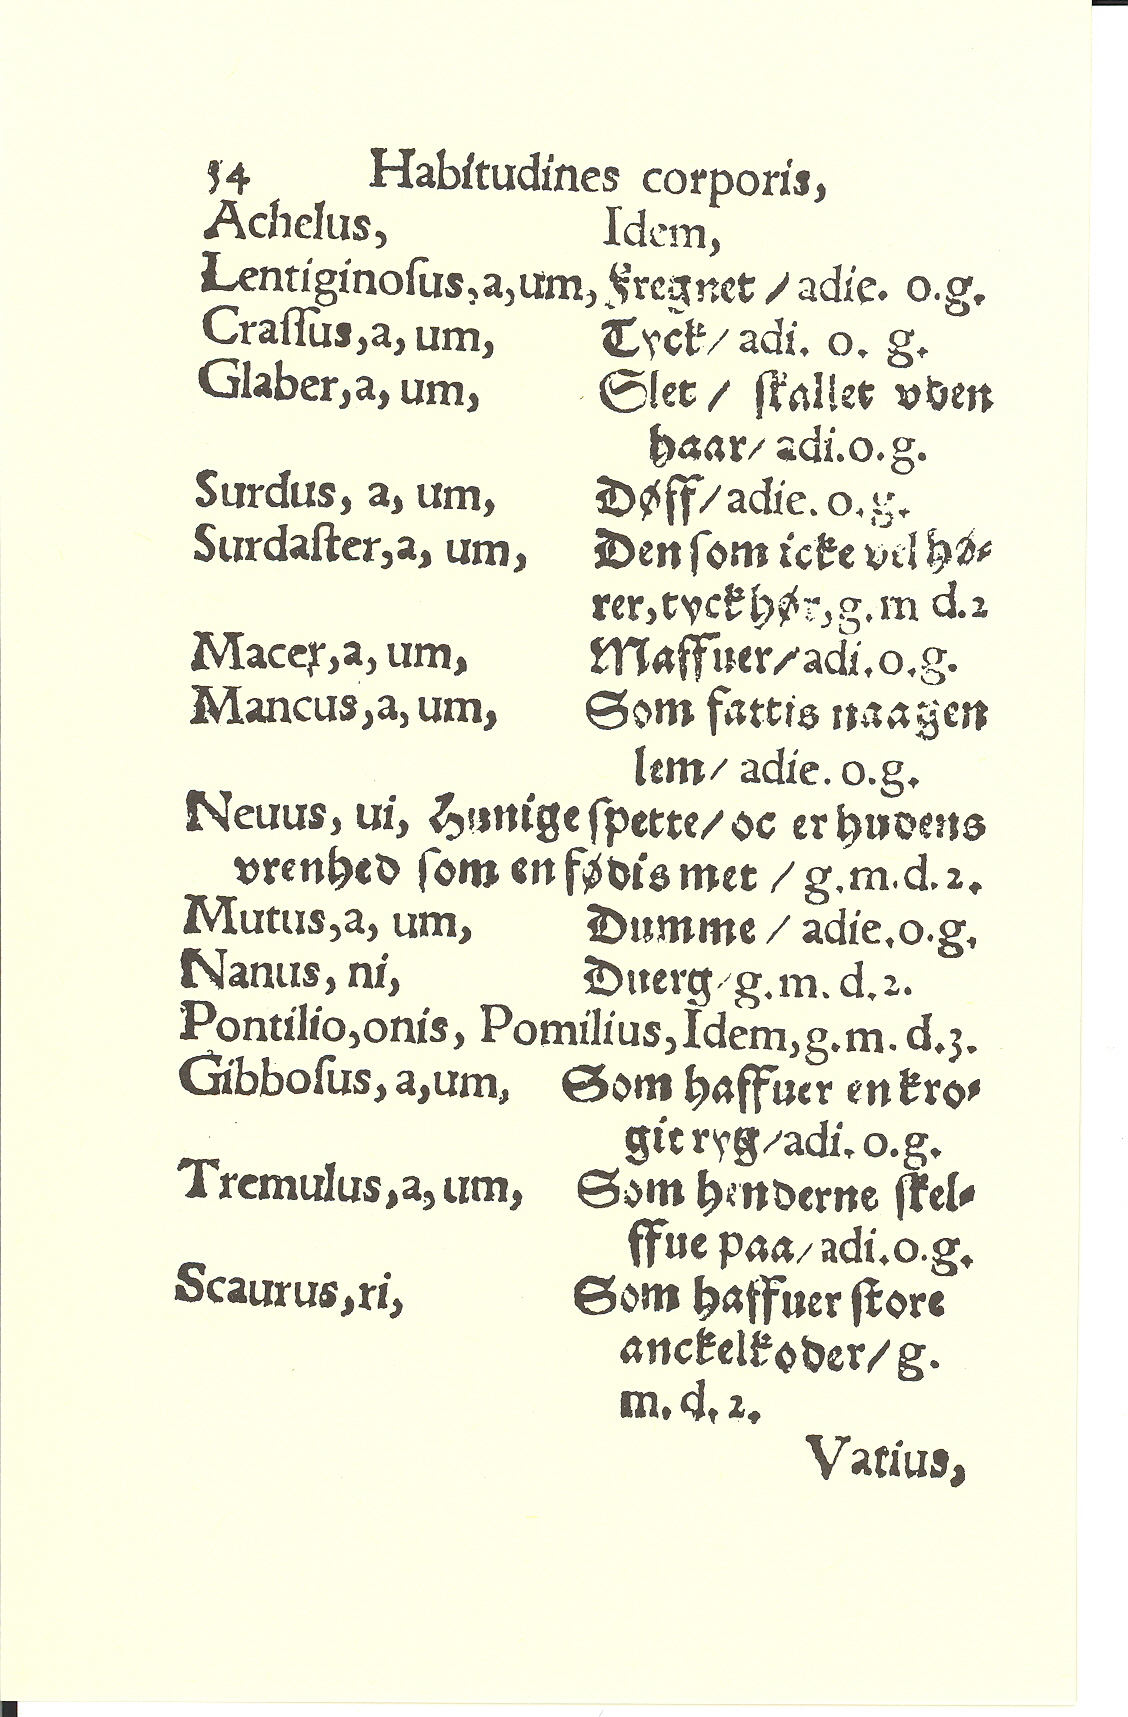 54 Habitudines corporis,
Achelus, Idem,
Lentiginoſus,a,um, Fregnet / adie. o.g.
Craſſus,a, um, Tyck / adi. o. g.
Glaber,a, um, Slet / ſkallet vden
haar / adi.o.g.
Surdus, a, um, Døff / adie. o.g.
Surdaſter,a, um, Den ſom icke vel hø-
rer, tyckhør, g.m d.2
Macer,a, um, Maffuer / adi.o.g.
Mancus,a, um, Som fattis naagen
lem / adie. o.g.
Neuus, ui, Hunige ſpette / oc er hudens
vrenhed ſom en fødis met / g.m.d.2.
Mutus,a, um, Dumme / adie.o.g.
Nanus, ni, Duerg / g.m. d.2.
Pontilio,onis, Pomilius,Idem,g.m. d.3.
Gibboſus, a,um, Som haffuer en kro-
git ryg / adi. o.g.
Tremulus,a, um, Som henderne ſkel-
ffue paa / adi.o.g.
Scaurus,ri, Som haffuer ſtore
anckelkoder / g.
m. d. 2.
Vatius,